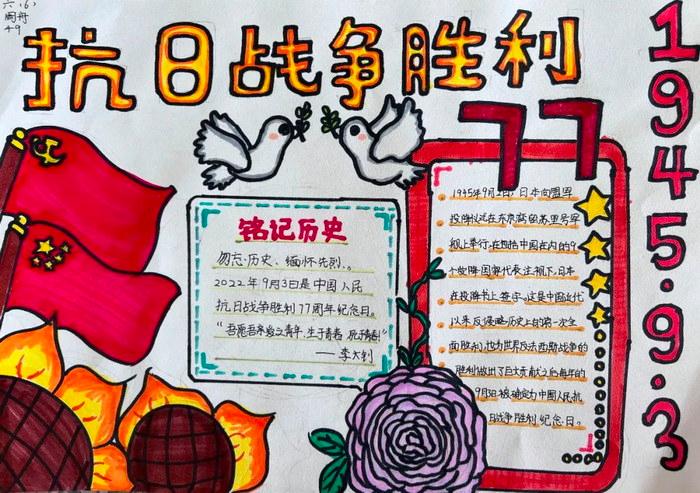 六.(6)
49
抗日战争胜利
77
1945.9.3
铭记历史
勿忘历史、缅怀先烈。
2022年9月3日是中国人民
抗日战争胜利77周年纪念日。
“吾愿吾亲爱之青年,生于青春 死于青春”
——李大钊
1945年9月2日,日本向盟军
投降仪式在东京湾的苏里号军
舰上举行,在包括中国在内的9
个受降国家代表注视下,日本
在投降书上签字。这是中国近代
以来反侵略历史上的第一次全
面胜利,也为世界反法西斯战争的
胜利做出了巨大贡献之后每年的
9月3日被确定为中国人民抗
日战争胜利纪念日。